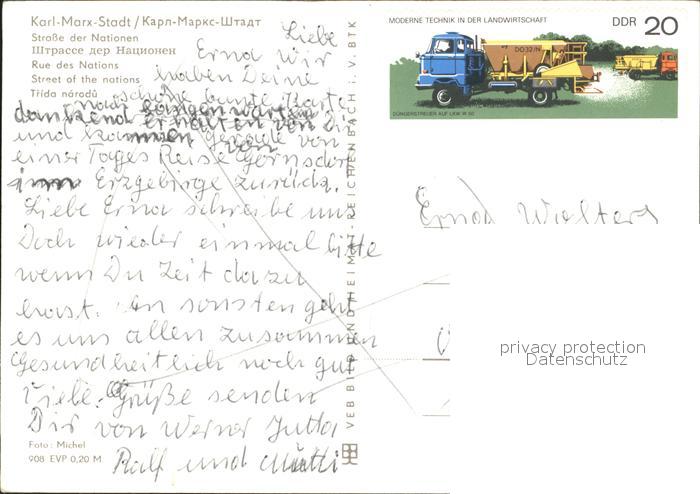 Karl-Marx-Stadt / Карл-Маркс-Штадт
Straße der Nationen
Штрассе дер Национен
Rue des Nations
Street of the nations
Třída národů
Liebe
Erna wir
haben Deine
schöne bunte Karte
dankend erhalten von Dir
und kommen gerade von
einer Tages Reise
Erzgebirge zurück.
Liebe Erna schreibe uns
Doch wieder einmal bitte
wenn Du Zeit dazu
hast. An sonsten geht
es uns allen zusammen
Gesundheitlich noch gut
Viele Grüße senden
Dir von Werner Jutta
Ralf und Mutti
Foto: Michel
908 EVP 0,20 M
VEB BILD UND HEIMAT REICHENBACH i. V. BTK
MODERNE TECHNIK IN DER LANDWIRTSCHAFT
DDR 20
DO32/N
DÜNGERSTREUER AUF LKW W 50
Erna
privacy protection
Datenschutz